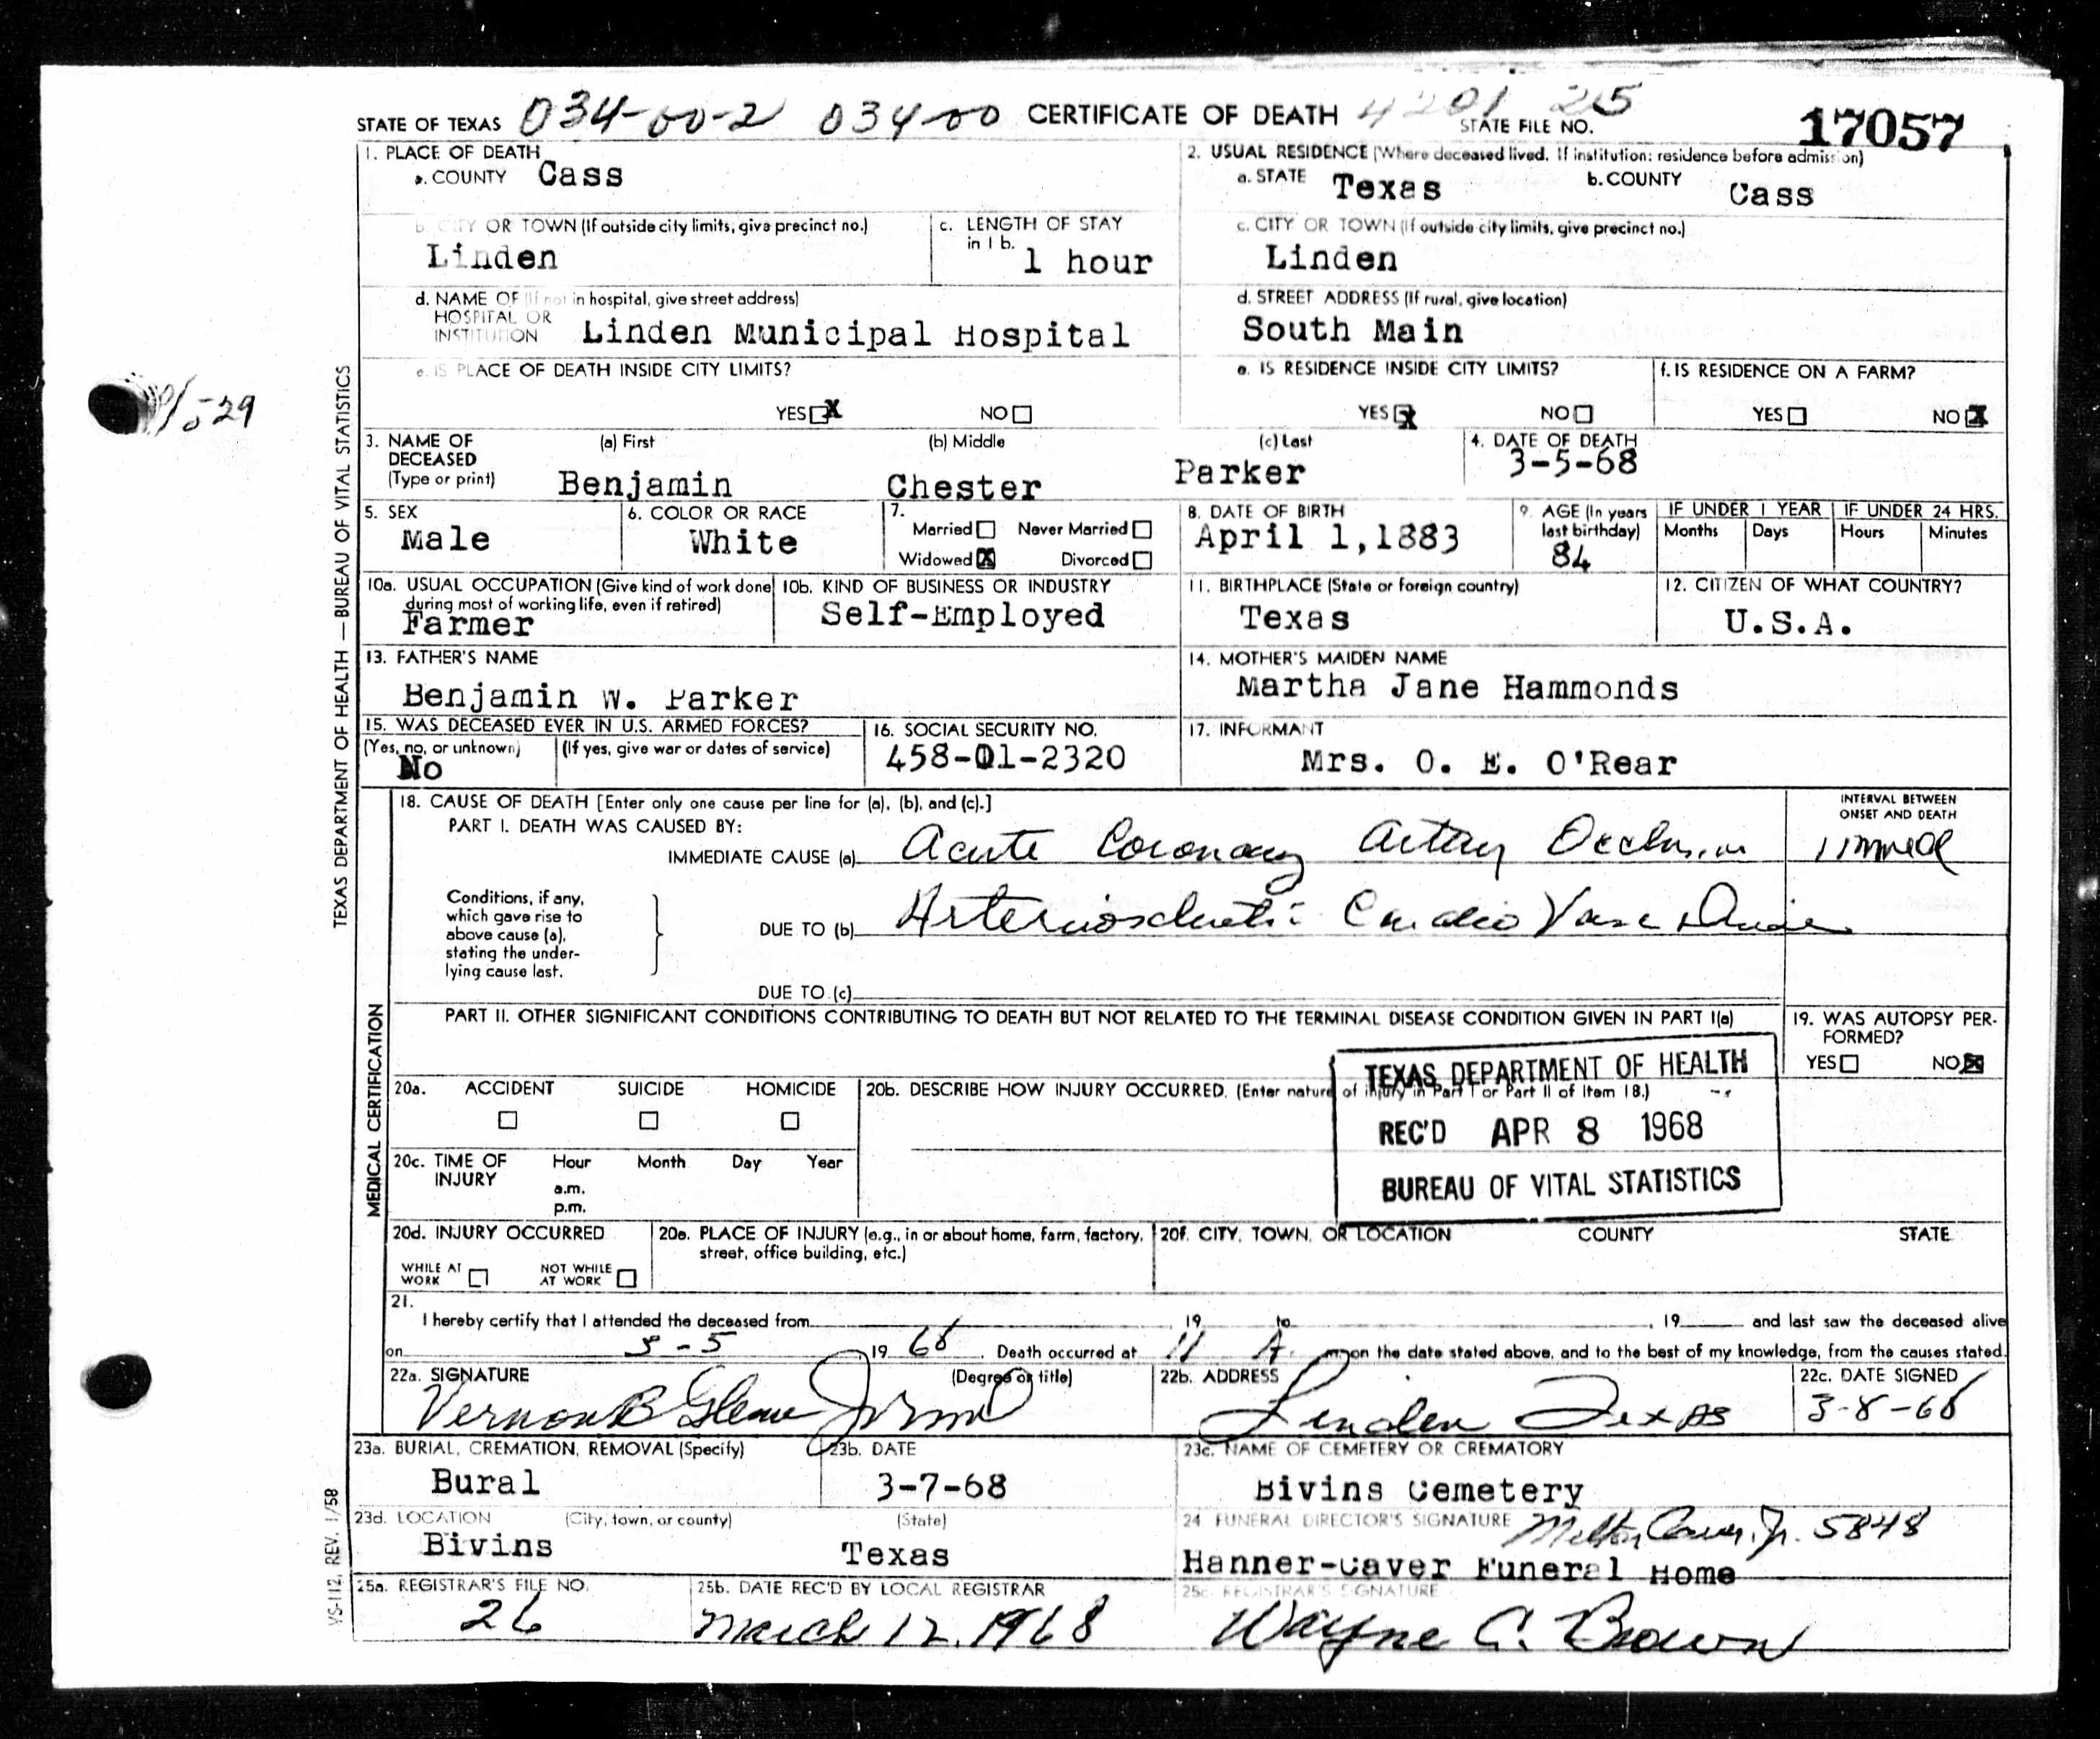 STATE OF TEXAS 034-00-2 034-00 CERTIFICATE OF DEATH 4201 25 STATE FILE NO. 17057
1. PLACE OF DEATH
a. COUNTY Cass
2. USUAL RESIDENCE (Where deceased lived. If institution: residence before admission)
a. STATE Texas b. COUNTY Cass
b. CITY OR TOWN (If outside city limits, give precinct no.)
Linden
c. LENGTH OF STAY
in 1 b. 1 hour
c. CITY OR TOWN (If outside city limits, give precinct no.)
Linden
d. NAME OF (If not in hospital, give street address)
HOSPITAL OR
INSTITUTION Linden Municipal Hospital
d. STREET ADDRESS (If rural, give location)
South Main
e. IS PLACE OF DEATH INSIDE CITY LIMITS?
YES X NO
e. IS RESIDENCE INSIDE CITY LIMITS?
YES X NO
f. IS RESIDENCE ON A FARM?
YES NO X
3. NAME OF DECEASED (Type or print)
(a) First (b) Middle (c) Last
Benjamin Chester Parker
4. DATE OF DEATH
3-5-68
5. SEX
Male
6. COLOR OR RACE
White
7.
Married Never Married
Widowed X Divorced
8. DATE OF BIRTH
April 1,1883
9. AGE (In years
last birthday)
84
IF UNDER 1 YEAR
Months Days
IF UNDER 24 HRS.
Hours Minutes
10a. USUAL OCCUPATION (Give kind of work done
during most of working life, even if retired)
Farmer
10b. KIND OF BUSINESS OR INDUSTRY
Self-Employed
11. BIRTHPLACE (State or foreign country)
Texas
12. CITIZEN OF WHAT COUNTRY?
U.S.A.
13. FATHER'S NAME
Benjamin W. Parker
14. MOTHER'S MAIDEN NAME
Martha Jane Hammonds
15. WAS DECEASED EVER IN U.S. ARMED FORCES?
(Yes, no, or unknown) (If yes, give war or dates of service)
No
16. SOCIAL SECURITY NO.
458-01-2320
17. INFORMANT
Mrs. O. E. O'Rear
18. CAUSE OF DEATH [Enter only one cause per line for (a), (b), and (c).]
PART I. DEATH WAS CAUSED BY:
IMMEDIATE CAUSE (a) Acute Coronary Artery Occlusion
INTERVAL BETWEEN
ONSET AND DEATH
Conditions, if any,
which gave rise to
above cause (a),
stating the under-
lying cause last.
DUE TO (b) Arteriosclerotic Cardio Vasc Disease
DUE TO (c)
PART II. OTHER SIGNIFICANT CONDITIONS CONTRIBUTING TO DEATH BUT NOT RELATED TO THE TERMINAL DISEASE CONDITION GIVEN IN PART I(a)
19. WAS AUTOPSY PER-
FORMED?
YES NO X
TEXAS DEPARTMENT OF HEALTH
REC'D APR 8 1968
BUREAU OF VITAL STATISTICS
20a. ACCIDENT SUICIDE HOMICIDE
20b. DESCRIBE HOW INJURY OCCURRED. (Enter nature of injury in Part I or Part II of Item 18.)
20c. TIME OF INJURY
Hour Month Day Year
a.m.
p.m.
20d. INJURY OCCURRED
WHILE AT WORK NOT WHILE AT WORK
20e. PLACE OF INJURY (e.g., in or about home, farm, factory,
street, office building, etc.)
20f. CITY, TOWN, OR LOCATION COUNTY STATE
21.
I hereby certify that I attended the deceased from , 19 to , 19 and last saw the deceased alive
on 3-5 , 19 68 . Death occurred at 11 A. m., on the date stated above, and to the best of my knowledge, from the causes stated.
22a. SIGNATURE (Degree or title)
Vernon B Glenn Jr MD
22b. ADDRESS
Linden Texas
22c. DATE SIGNED
3-8-68
23a. BURIAL, CREMATION, REMOVAL (Specify)
Bural
23b. DATE
3-7-68
23c. NAME OF CEMETERY OR CREMATORY
Bivins Cemetery
23d. LOCATION (City, town, or county) (State)
Bivins Texas
24 FUNERAL DIRECTOR'S SIGNATURE Jr. 5848
Hanner-Caver Funeral Home
25a. REGISTRAR'S FILE NO.
26
25b. DATE REC'D BY LOCAL REGISTRAR
March 12, 1968
25c. REGISTRAR'S SIGNATURE
Wayne C. Brown
TEXAS DEPARTMENT OF HEALTH — BUREAU OF VITAL STATISTICS
MEDICAL CERTIFICATION
VS-112, REV. 1/58